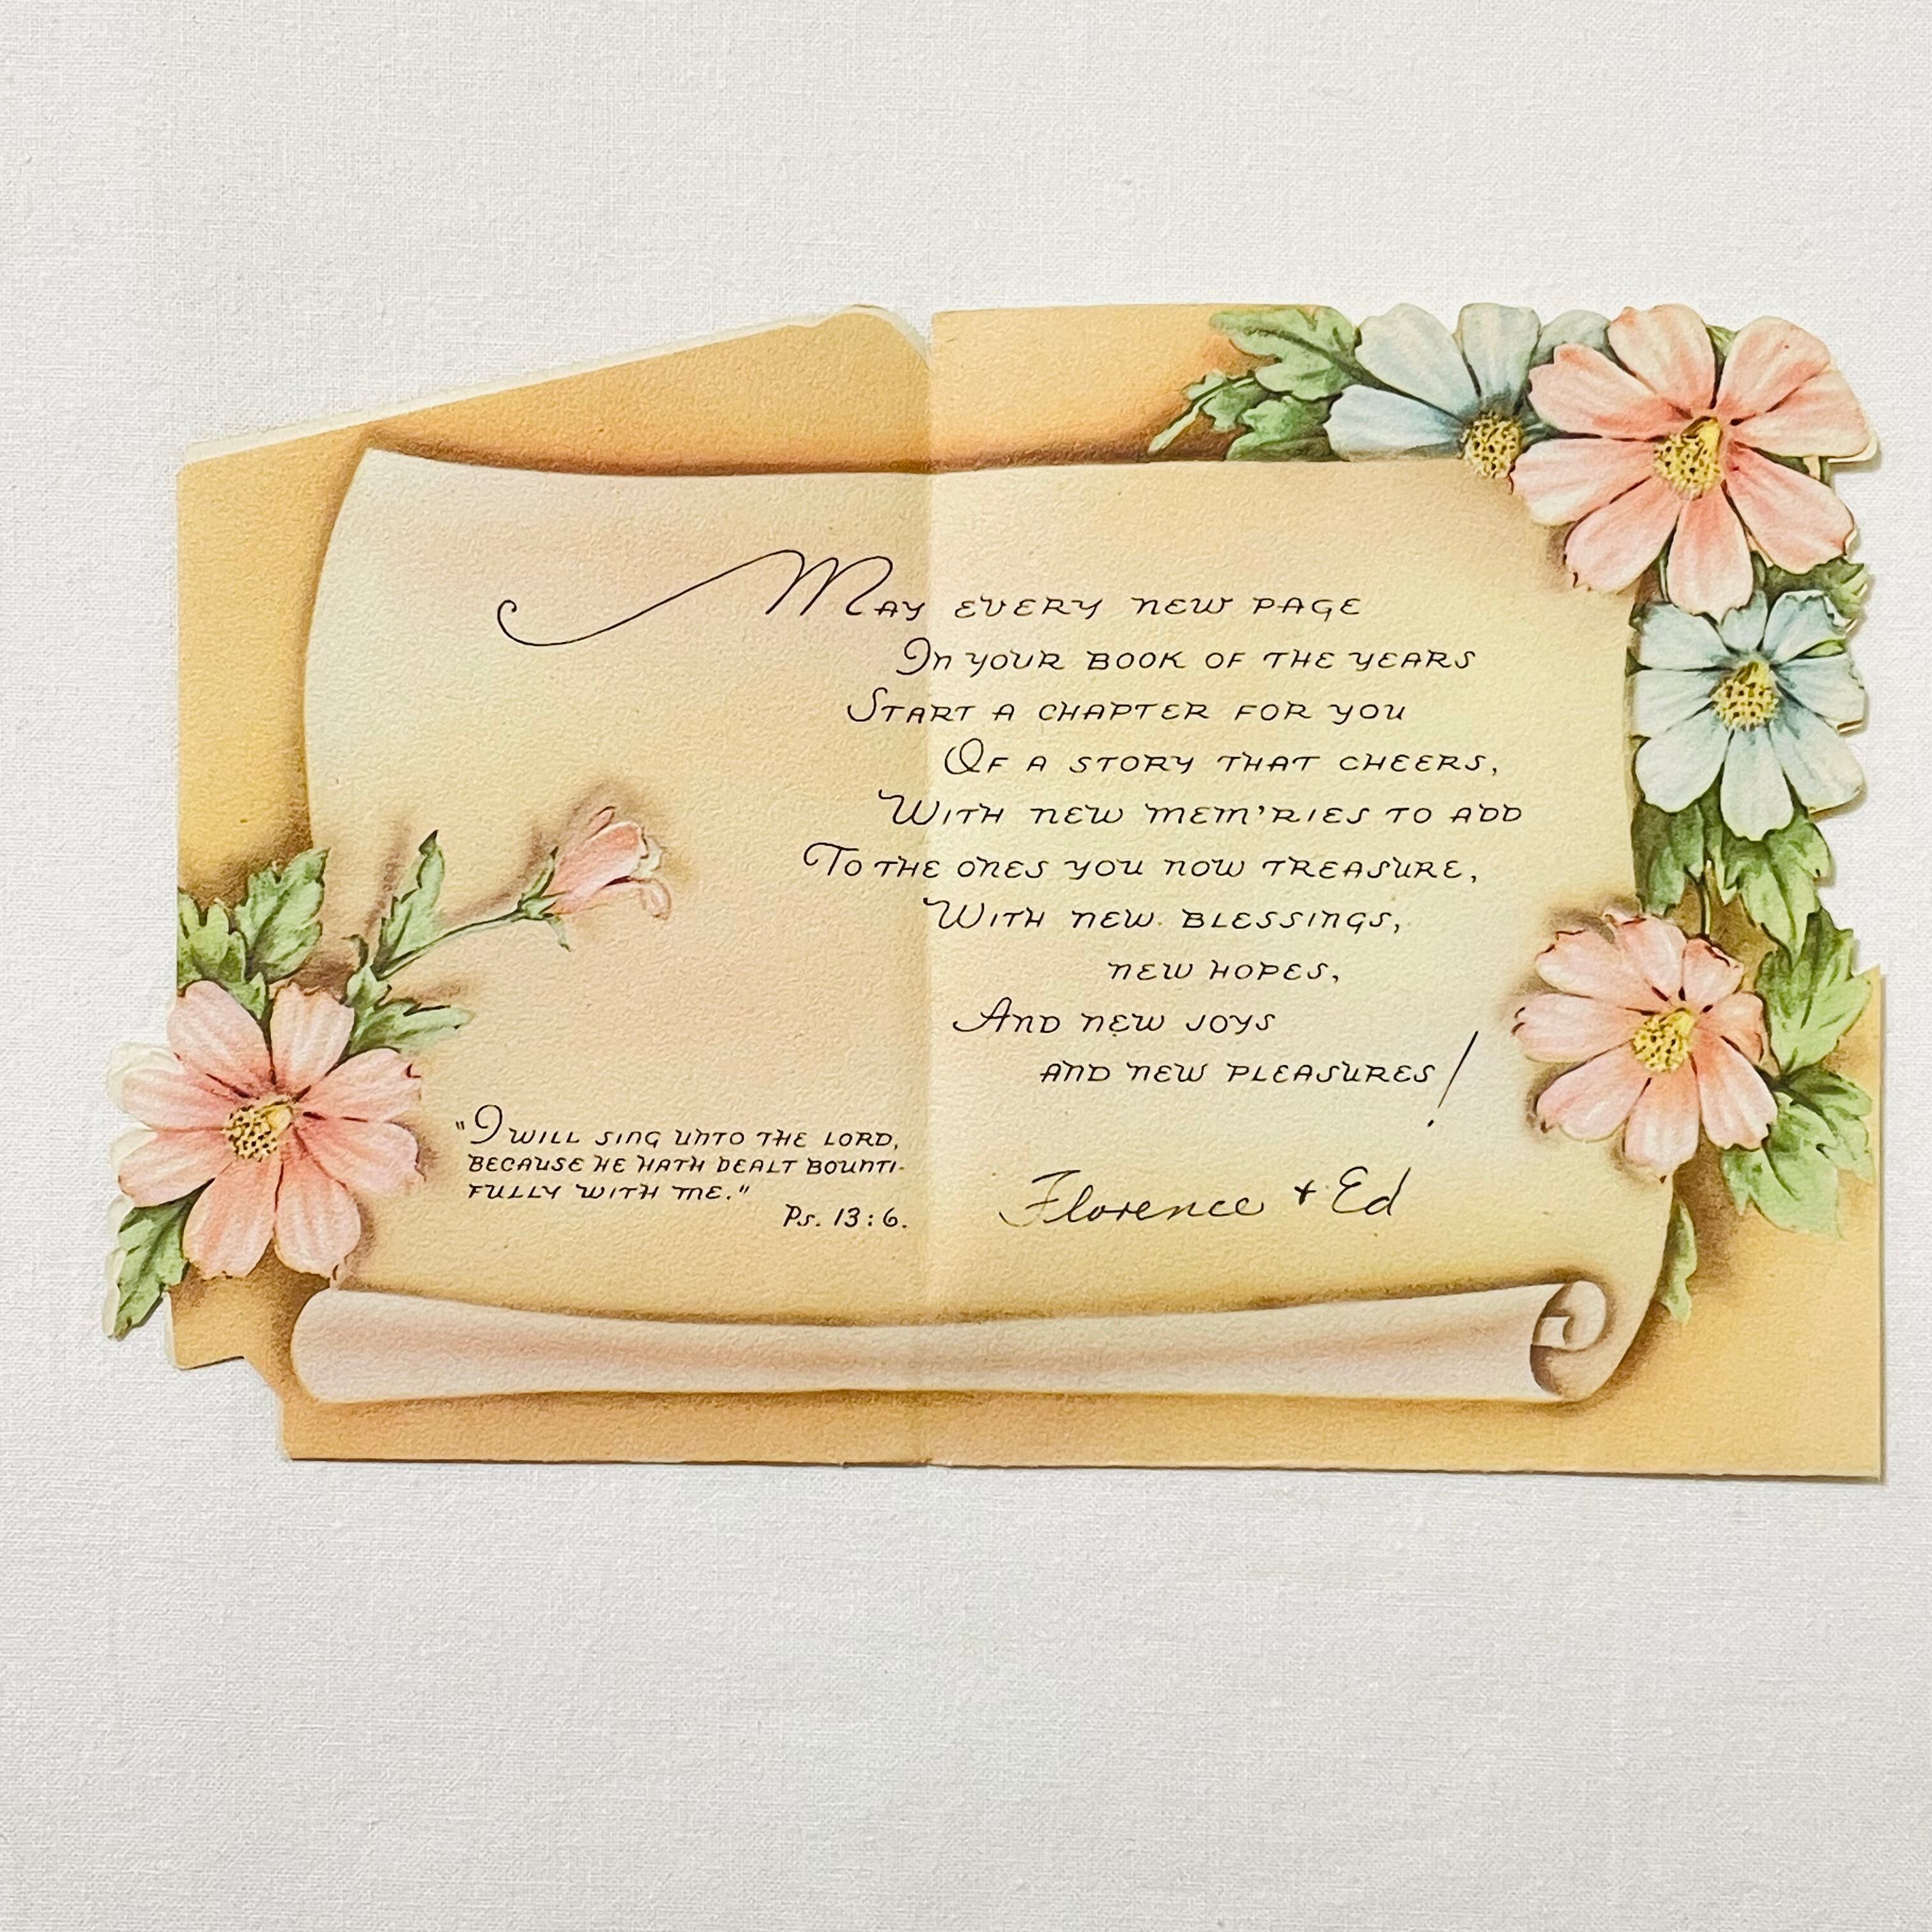 May every new page
In your book of the years
Start a chapter for you
Of a story that cheers,
With new mem'ries to add
To the ones you now treasure,
With new blessings,
new hopes,
And new joys
and new pleasures!
"I will sing unto the Lord,
because He hath dealt bounti-
fully with me."
Ps. 13:6.
Florence + Ed